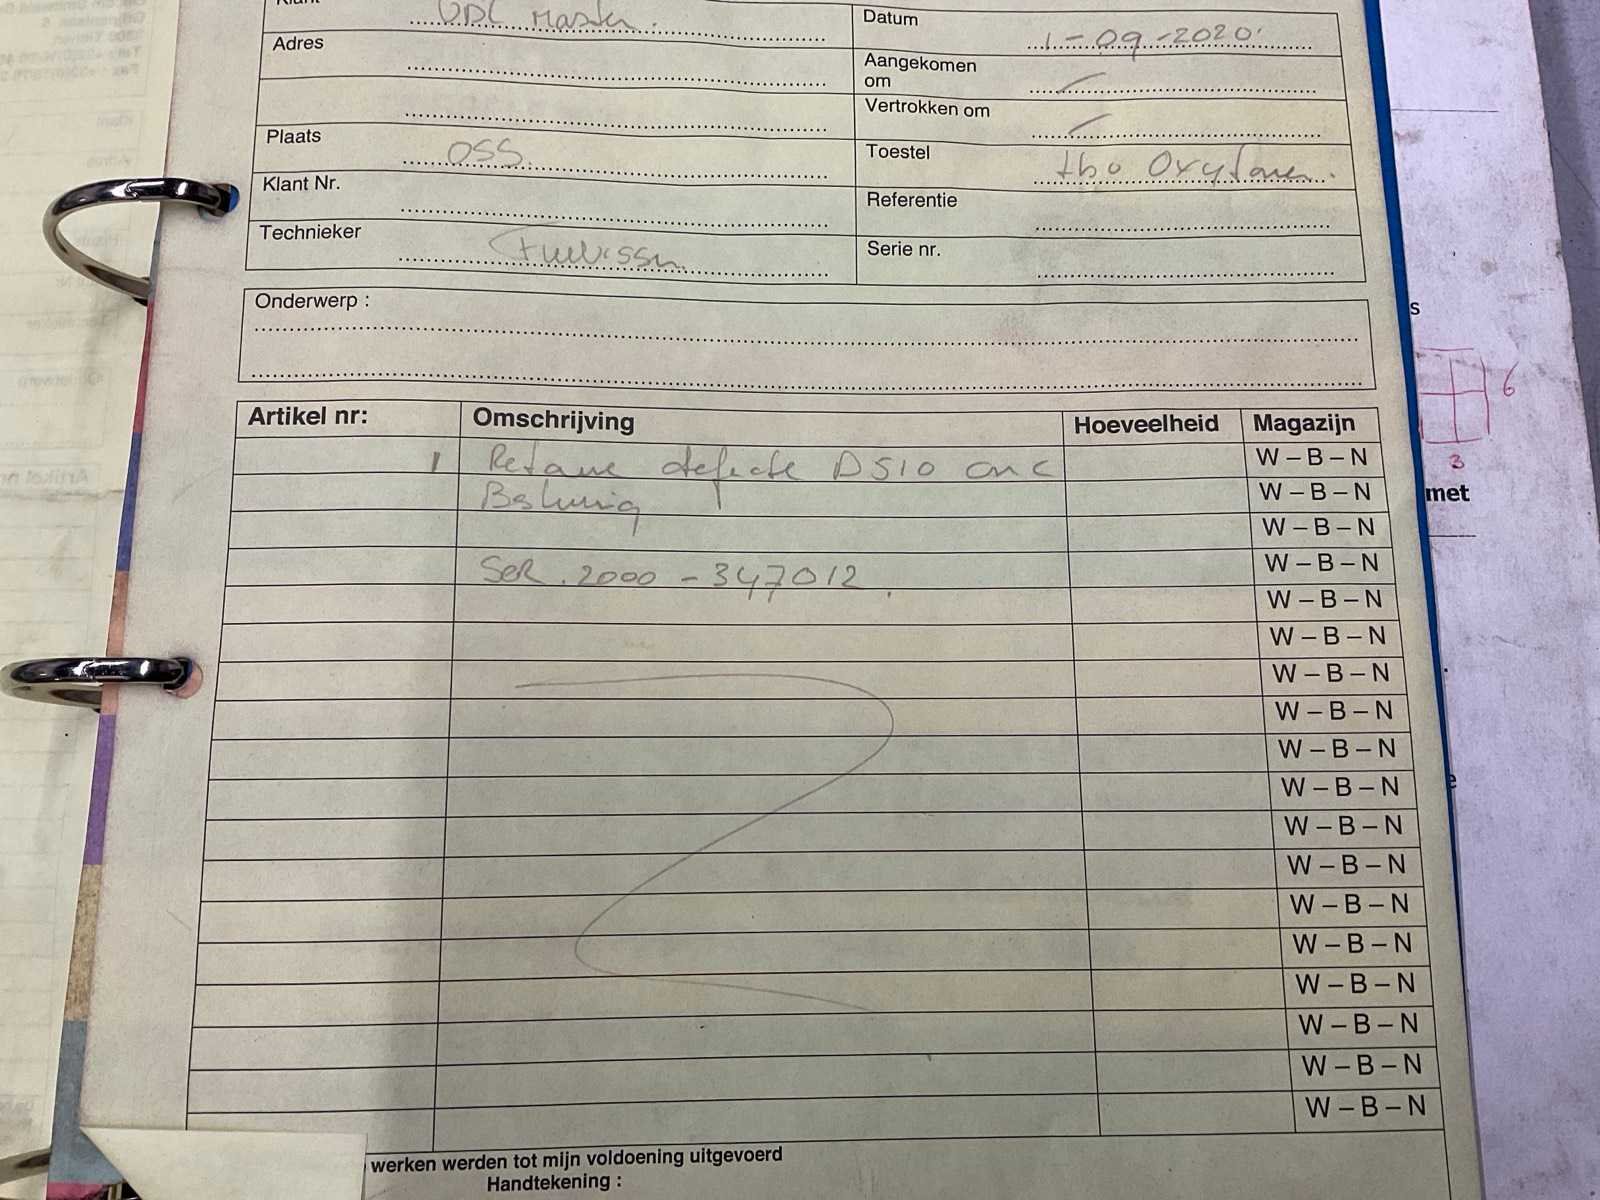 Klant VDL Master.
Datum 1-09-2020
Adres
Aangekomen om
Vertrokken om
Plaats OSS.
Toestel
Klant Nr.
Referentie
Technieker
Serie nr.
Onderwerp :
Artikel nr: Omschrijving Hoeveelheid Magazijn
1 Retour defecte D510 cnc W – B – N
Besturing W – B – N
W – B – N
SER. 2000 - 347012. W – B – N
W – B – N
W – B – N
W – B – N
W – B – N
W – B – N
W – B – N
W – B – N
W – B – N
W – B – N
W – B – N
W – B – N
W – B – N
W – B – N
W – B – N
werken werden tot mijn voldoening uitgevoerd
Handtekening :
s
6
3
met